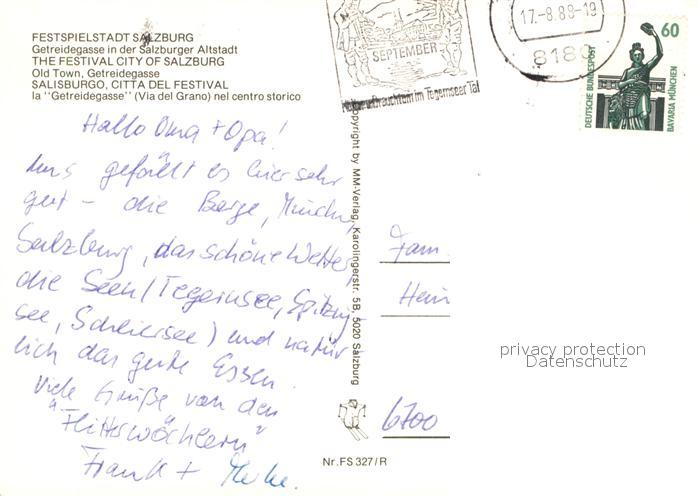 FESTSPIELSTADT SALZBURG
Getreidegasse in der Salzburger Altstadt
THE FESTIVAL CITY OF SALZBURG
Old Town, Getreidegasse
SALISBURGO, CITTA DEL FESTIVAL
la "Getreidegasse" (Via del Grano) nel centro storico
Hallo Oma + Opa!
uns gefällt es hier sehr
gut - die Berge, München,
Salzburg, das schöne Wetter,
die Seen (Tegernsee, Spitzing-
see, Schliersee) und natür-
lich das gute Essen.
Viele Grüße von den
"Flitterwöchlern"
Frank +
Copyright by MM-Verlag, Karolingerstr. 5B, 5020 Salzburg
Nr. FS 327/R
SEPTEMBER
im Tegernseer Tal
17.-8.88-19
8180
60
DEUTSCHE BUNDESPOST
BAVARIA MÜNCHEN
Fam.
Hein
6700
privacy protection
Datenschutz